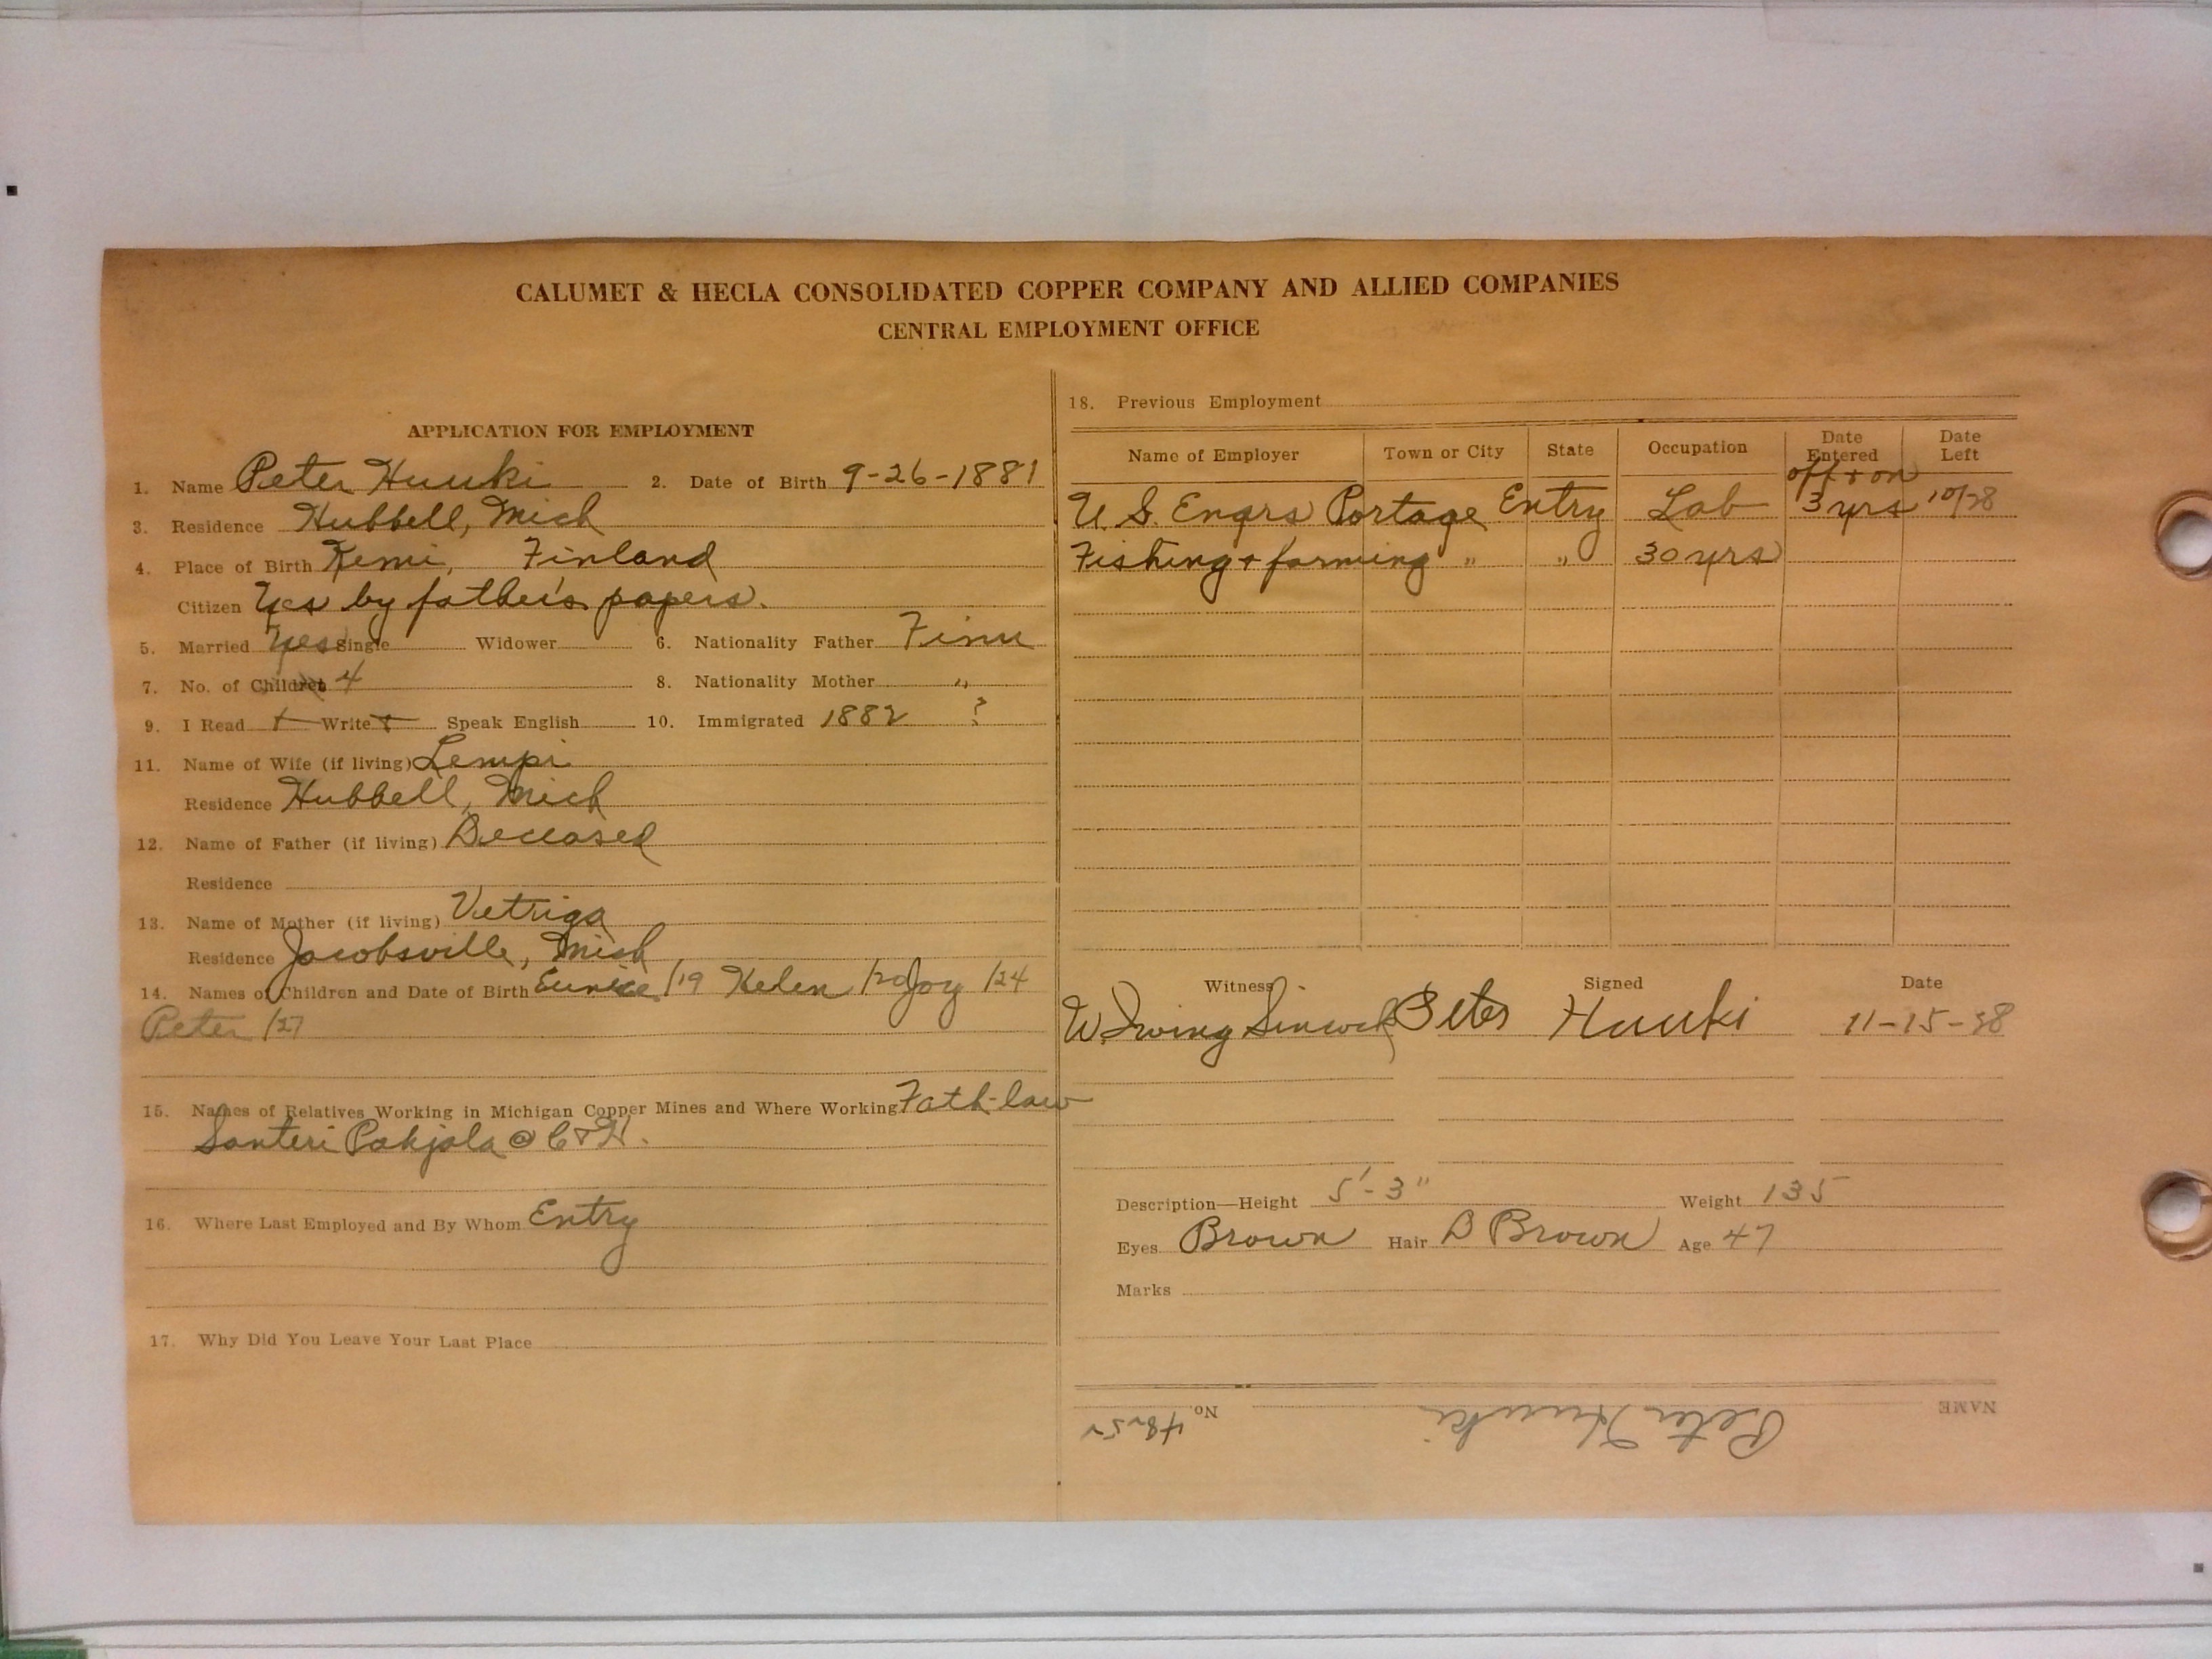 CALUMET & HECLA CONSOLIDATED COPPER COMPANY AND ALLIED COMPANIES
CENTRAL EMPLOYMENT OFFICE
APPLICATION FOR EMPLOYMENT
1. Name Peter Huuki 2. Date of Birth 9-26-1881
3. Residence Hubbell, Mich
4. Place of Birth Kemi, Finland
Citizen Yes by father's papers.
5. Married Yes Single Widower 6. Nationality Father Finn
7. No. of Children 4 8. Nationality Mother "
9. I Read + Write + Speak English 10. Immigrated 1882 ?
11. Name of Wife (if living) Lempi
Residence Hubbell, Mich
12. Name of Father (if living) Deceased
Residence
13. Name of Mother (if living)
Residence Jacobsville, Mich
14. Names of Children and Date of Birth Eunice /19 Helen /20 Joy /24
Peter /27
15. Names of Relatives Working in Michigan Copper Mines and Where Working Fath-law
Santeri Pohjola @ C & H.
16. Where Last Employed and By Whom Entry
17. Why Did You Leave Your Last Place
18. Previous Employment
Name of Employer Town or City State Occupation Date Entered Date Left
off + on
U.S. Engrs Portage Entry Lab 3 yrs 10/28
Fishing + farming " " 30 yrs
Witness Signed Date
W. Irving Peter Huuki 11-15-28
Description—Height 5'-3" Weight 135
Eyes Brown Hair D Brown Age 47
Marks
NAME Peter Huuki No.